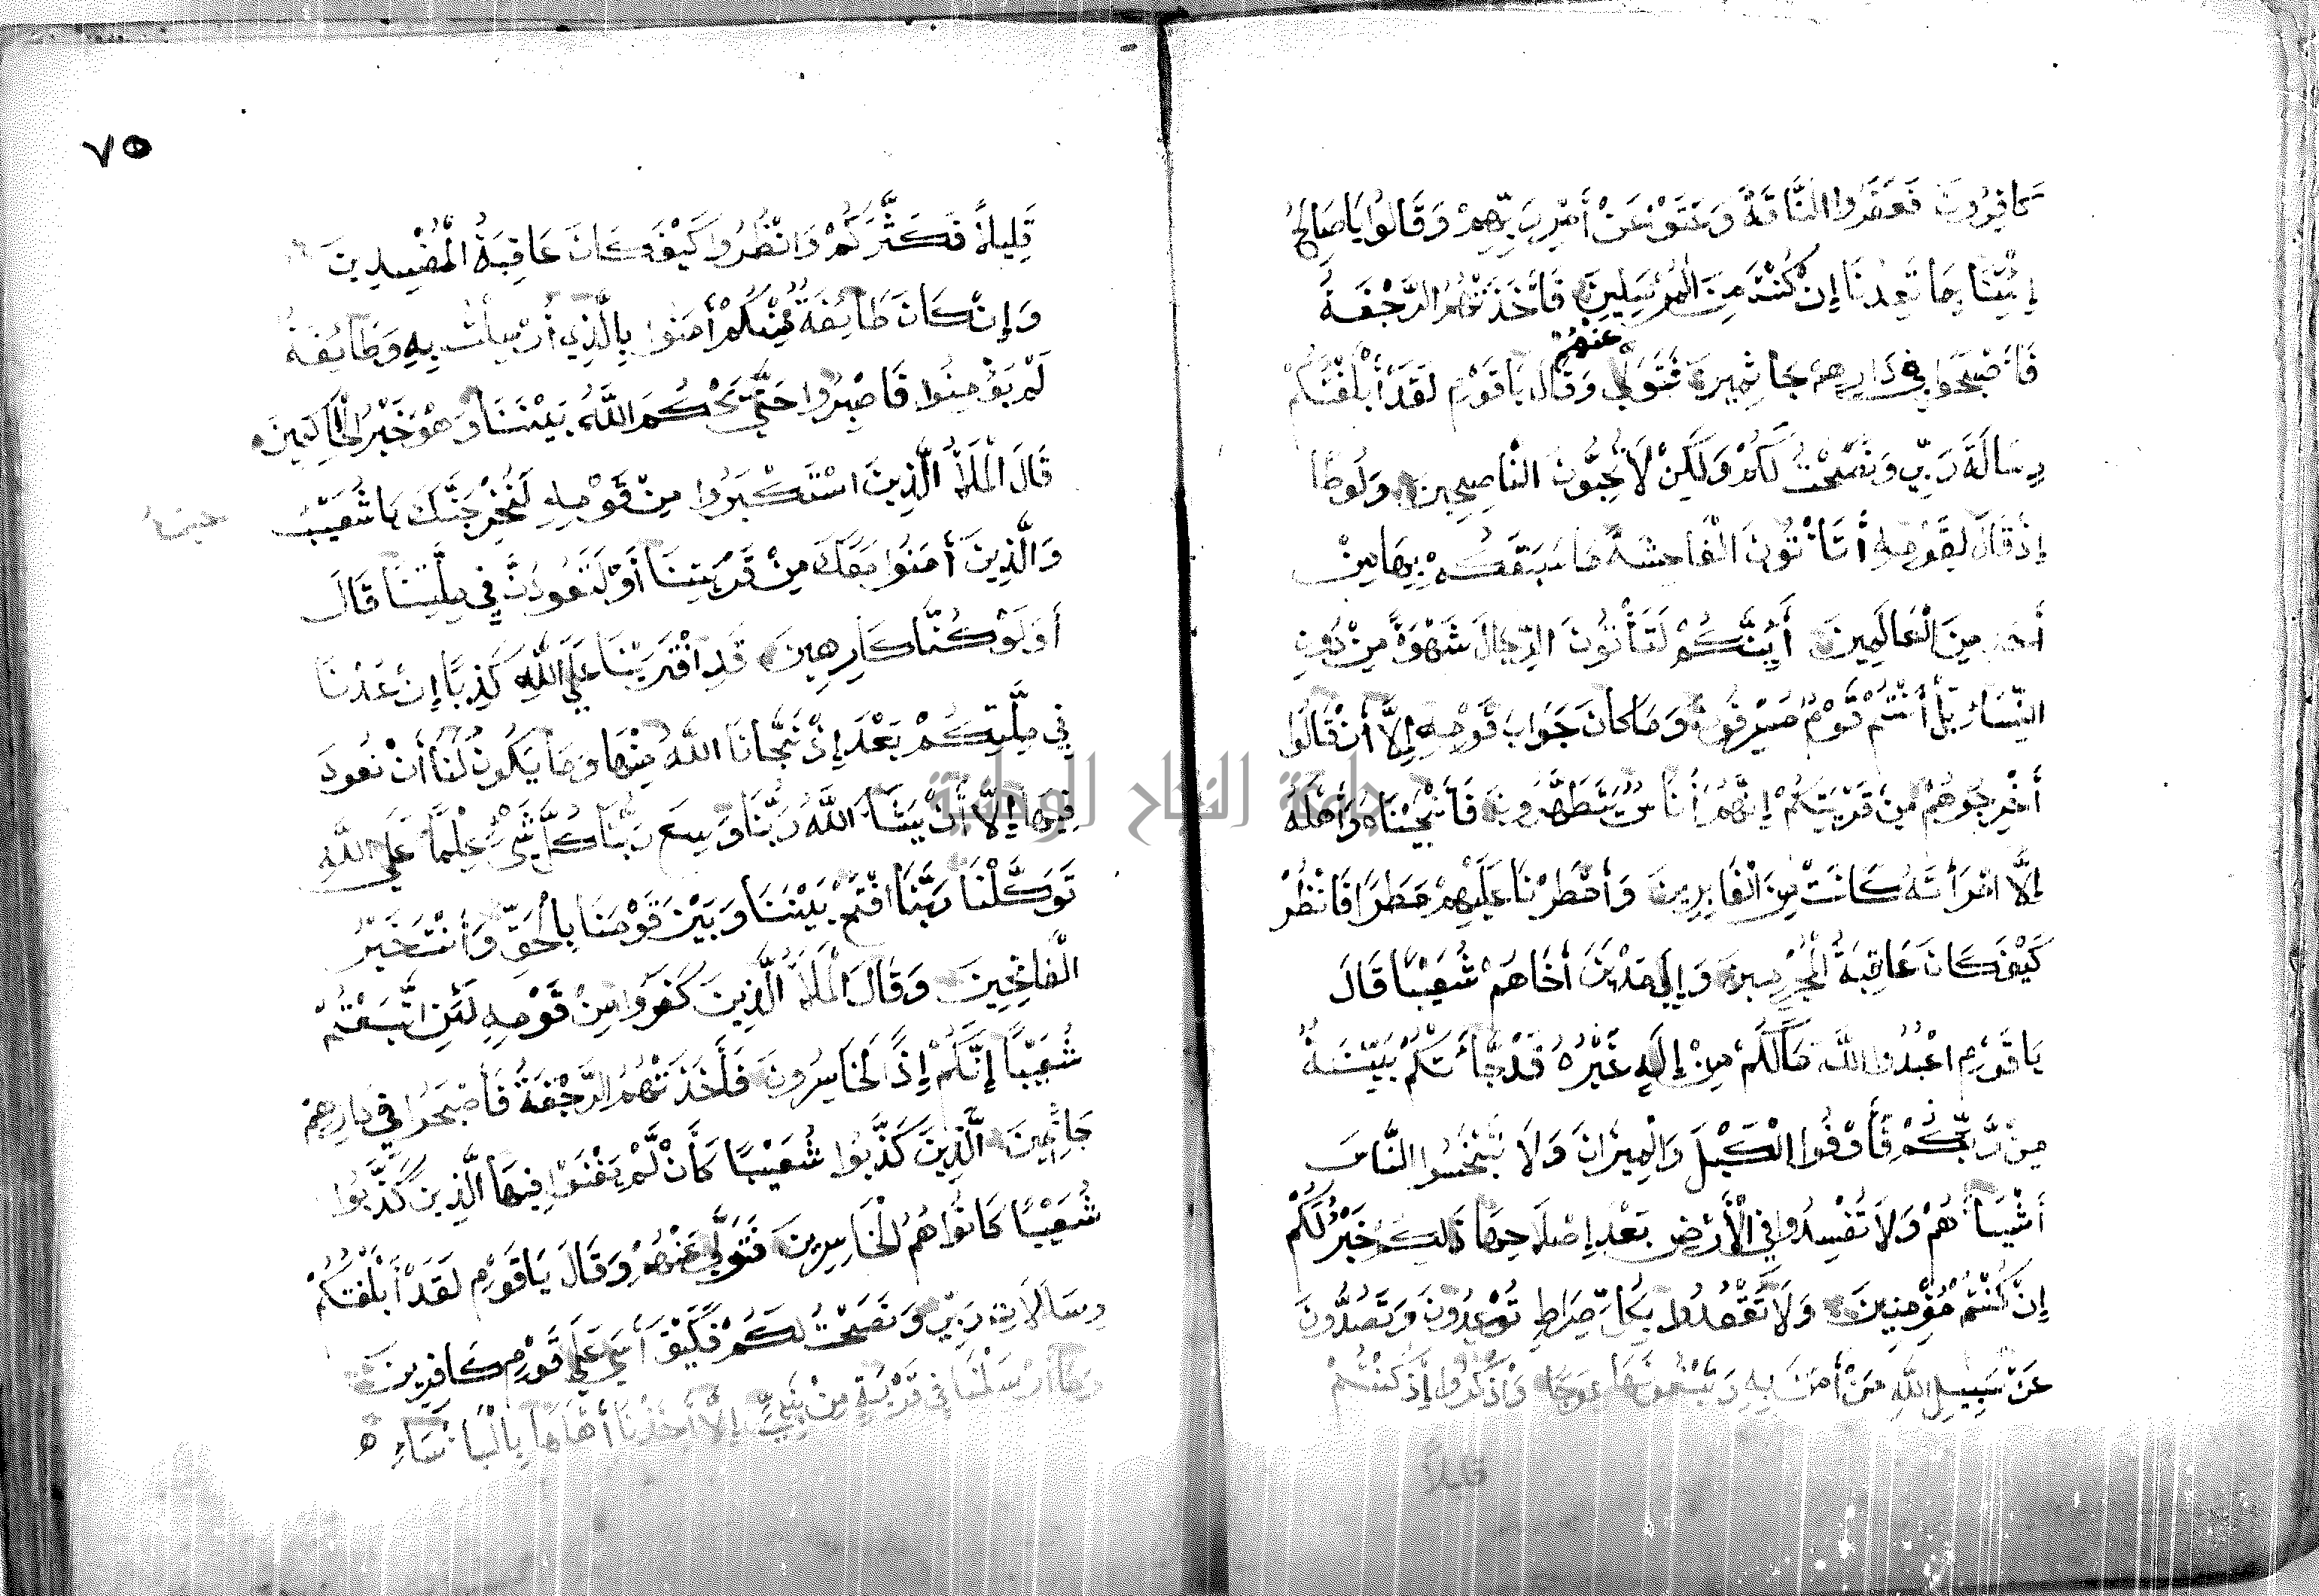 كَافِرُونَ فَعَقَرُوا النَّاقَةَ وَعَتَوْا عَنْ أَمْرِ رَبِّهِمْ وَقَالُوا يَا صَالِحُ
إِئْتِنَا بِمَا تَعِدُنَا إِنْ كُنْتَ مِنَ الْمُرْسَلِينَ فَأَخَذَتْهُمُ الرَّجْفَةُ
فَأَصْبَحُوا فِي دَارِهِمْ جَاثِمِينَ فَتَوَلَّى عَنْهُمْ وَقَالَ يَا قَوْمِ لَقَدْ أَبْلَغْتُكُمْ
رِسَالَةَ رَبِّي وَنَصَحْتُ لَكُمْ وَلَكِنْ لَا تُحِبُّونَ النَّاصِحِينَ وَلُوطًا
إِذْ قَالَ لِقَوْمِهِ أَتَأْتُونَ الْفَاحِشَةَ مَا سَبَقَكُمْ بِهَا مِنْ
أَحَدٍ مِنَ الْعَالَمِينَ أَئِنَّكُمْ لَتَأْتُونَ الرِّجَالَ شَهْوَةً مِنْ دُونِ
النِّسَاءِ بَلْ أَنْتُمْ قَوْمٌ مُسْرِفُونَ وَمَا كَانَ جَوَابَ قَوْمِهِ إِلَّا أَنْ قَالُوا
أَخْرِجُوهُمْ مِنْ قَرْيَتِكُمْ إِنَّهُمْ أُنَاسٌ يَتَطَهَّرُونَ فَأَنْجَيْنَاهُ وَأَهْلَهُ
إِلَّا امْرَأَتَهُ كَانَتْ مِنَ الْغَابِرِينَ وَأَمْطَرْنَا عَلَيْهِمْ مَطَرًا فَانْظُرْ
كَيْفَ كَانَ عَاقِبَةُ الْمُجْرِمِينَ وَإِلَى مَدْيَنَ أَخَاهُمْ شُعَيْبًا قَالَ
يَا قَوْمِ اعْبُدُوا اللَّهَ مَا لَكُمْ مِنْ إِلَهٍ غَيْرُهُ قَدْ جَاءَتْكُمْ بَيِّنَةٌ
مِنْ رَّبِّكُمْ فَأَوْفُوا الْكَيْلَ وَالْمِيزَانَ وَلَا تَبْخَسُوا النَّاسَ
أَشْيَاءَهُمْ وَلَا تُفْسِدُوا فِي الْأَرْضِ بَعْدَ إِصْلَاحِهَا ذَلِكُمْ خَيْرٌ لَكُمْ
إِنْ كُنْتُمْ مُؤْمِنِينَ وَلَا تَقْعُدُوا بِكُلِّ صِرَاطٍ تُوعِدُونَ وَتَصُدُّونَ
عَنْ سَبِيلِ اللَّهِ مَنْ أَمَنَ بِهِ وَتَبْغُونَهَا عِوَجًا وَاذْكُرُوا إِذْ كُنْتُمْ
قليلا
٧٥
قَلِيلًا فَكَثَّرَكُمْ وَانْظُرُوا كَيْفَ كَانَ عَاقِبَةُ الْمُفْسِدِينَ
وَإِنْ كَانَ طَائِفَةٌ مِنْكُمْ أَمَنُوا بِالَّذِي أُرْسِلْتُ بِهِ وَطَائِفَةٌ
لَمْ يُؤْمِنُوا فَاصْبِرُوا حَتَّى يَحْكُمَ اللَّهُ بَيْنَنَا وَهُوَ خَيْرُ الْحَاكِمِينَ
قَالَ الْمَلَأُ الَّذِينَ اسْتَكْبَرُوا مِنْ قَوْمِهِ لَنُخْرِجَنَّكَ يَا شُعَيْبُ
وَالَّذِينَ أَمَنُوا مَعَكَ مِنْ قَرْيَتِنَا أَوْ لَتَعُودُنَّ فِي مِلَّتِنَا قَالَ
أَوَلَوْ كُنَّا كَارِهِينَ قَدِ افْتَرَيْنَا عَلَى اللَّهِ كَذِبًا إِنْ عُدْنَا
فِي مِلَّتِكُمْ بَعْدَ إِذْ نَجَّانَا اللَّهُ مِنْهَا وَمَا يَكُونُ لَنَا أَنْ نَعُودَ
فِيهَا إِلَّا أَنْ يَشَاءَ اللَّهُ رَبُّنَا وَسِعَ رَبُّنَا كُلَّ شَيْءٍ عِلْمًا عَلَى اللَّهِ
تَوَكَّلْنَا رَبَّنَا افْتَحْ بَيْنَنَا وَبَيْنَ قَوْمِنَا بِالْحَقِّ وَأَنْتَ خَيْرُ
الْفَاتِحِينَ وَقَالَ الْمَلَأُ الَّذِينَ كَفَرُوا مِنْ قَوْمِهِ لَئِنِ اتَّبَعْتُمْ
شُعَيْبًا إِنَّكُمْ إِذًا لَخَاسِرُونَ فَأَخَذَتْهُمُ الرَّجْفَةُ فَأَصْبَحُوا فِي دَارِهِمْ
جَاثِمِينَ الَّذِينَ كَذَّبُوا شُعَيْبًا كَأَنْ لَّمْ يَغْنَوْا فِيهَا الَّذِينَ كَذَّبُوا
شُعَيْبًا كَانُوا هُمُ الْخَاسِرِينَ فَتَوَلَّى عَنْهُمْ وَقَالَ يَا قَوْمِ لَقَدْ أَبْلَغْتُكُمْ
رِسَالَاتِ رَبِّي وَنَصَحْتُ لَكُمْ فَكَيْفَ أَسَى عَلَى قَوْمٍ كَافِرِينَ
وَمَا أَرْسَلْنَا فِي قَرْيَةٍ مِنْ نَبِيٍّ إِلَّا أَخَذْنَا أَهْلَهَا بِالْبَأْسَاءِ
جامعة النجاح الوطنية